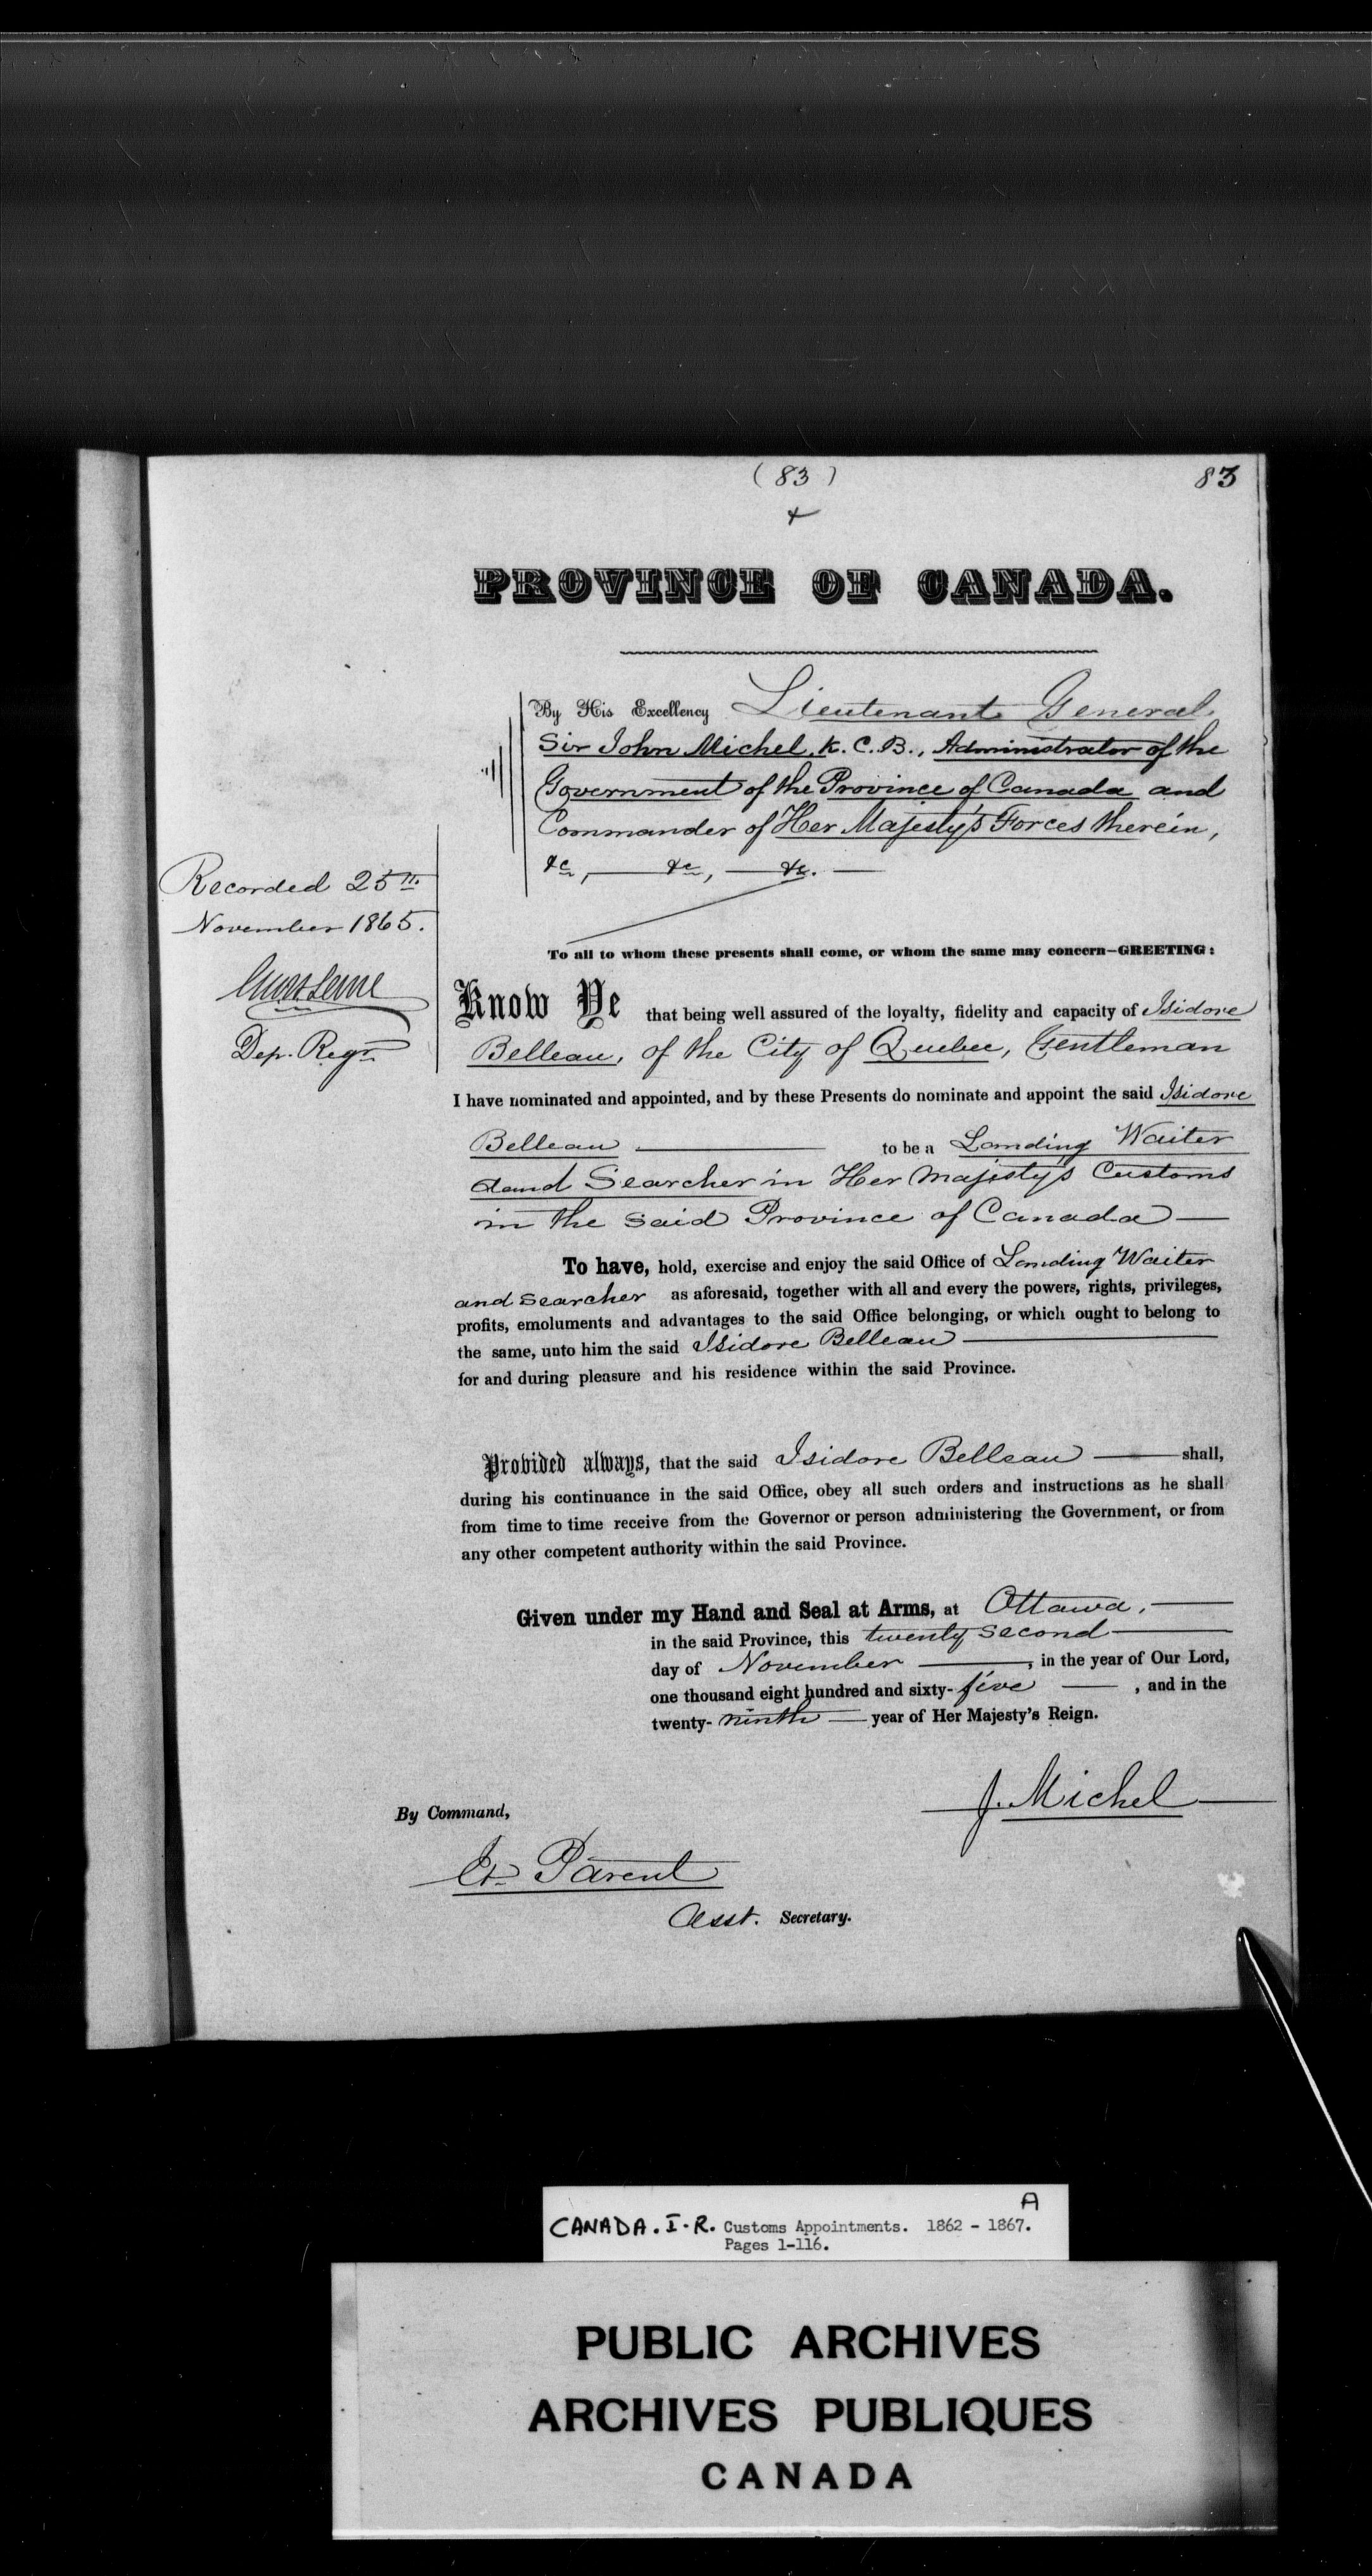 ( 83 )
83
PROVINCE OF CANADA.
By His Excellency Lieutenant General
Sir John Michel, K. C. B., Administrator of the
Government of the Province of Canada and
Commander of Her Majesty's Forces therein,
&c, — &c, — &c. —
Recorded 25th
November 1865.
Dep. Regr.
To all to whom these presents shall come, or whom the same may concern—GREETING:
Know Ye that being well assured of the loyalty, fidelity and capacity of Isidore
Belleau, of the City of Quebec, Gentleman
I have nominated and appointed, and by these Presents do nominate and appoint the said Isidore
Belleau — to be a Landing Waiter
and Searcher in Her Majesty's Customs
in the said Province of Canada —
To have, hold, exercise and enjoy the said Office of Landing Waiter
and Searcher as aforesaid, together with all and every the powers, rights, privileges,
profits, emoluments and advantages to the said Office belonging, or which ought to belong to
the same, unto him the said Isidore Belleau —
for and during pleasure and his residence within the said Province.
Provided always, that the said Isidore Belleau — shall,
during his continuance in the said Office, obey all such orders and instructions as he shall
from time to time receive from the Governor or person administering the Government, or from
any other competent authority within the said Province.
Given under my Hand and Seal at Arms, at Ottawa, —
in the said Province, this twenty second —
day of November —, in the year of Our Lord,
one thousand eight hundred and sixty-five — , and in the
twenty-ninth — year of Her Majesty's Reign.
J. Michel
By Command,
Et. Parent
Asst. Secretary.
A
CANADA. I. R. Customs Appointments. 1862 - 1867.
Pages 1-116.
PUBLIC ARCHIVES
ARCHIVES PUBLIQUES
CANADA